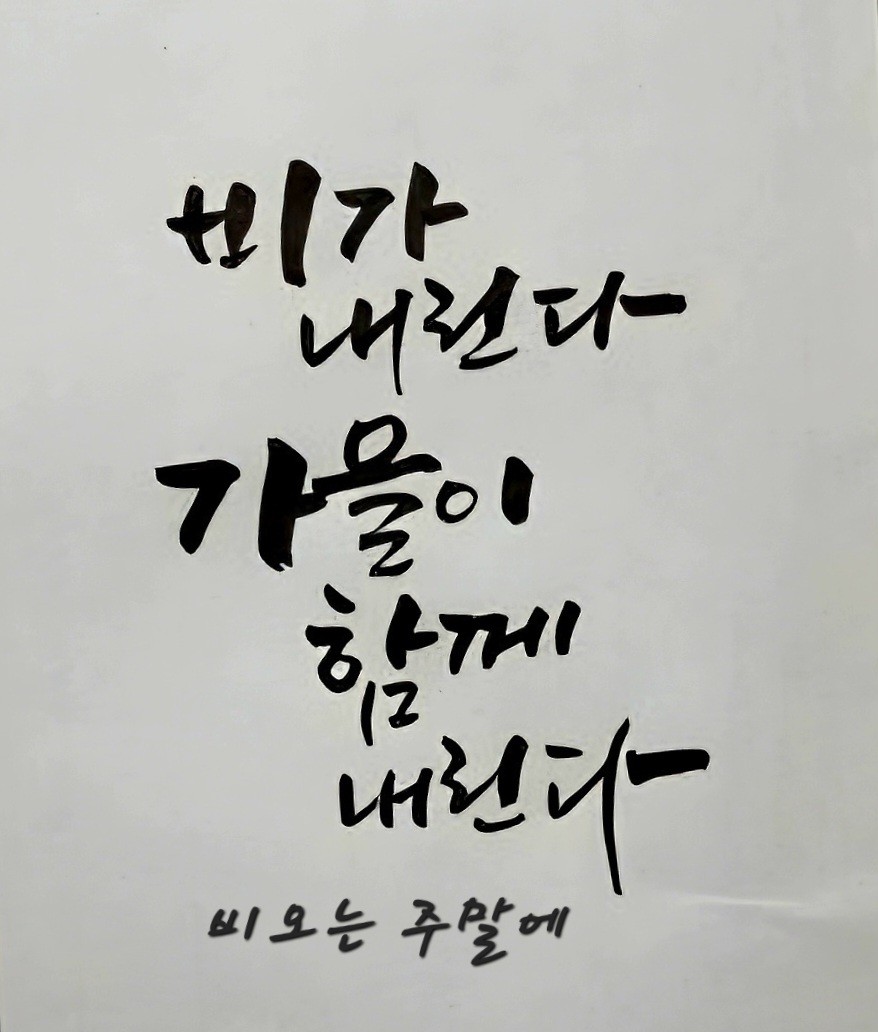 비가
내린다
가을이
함께
내린다
비오는 주말에